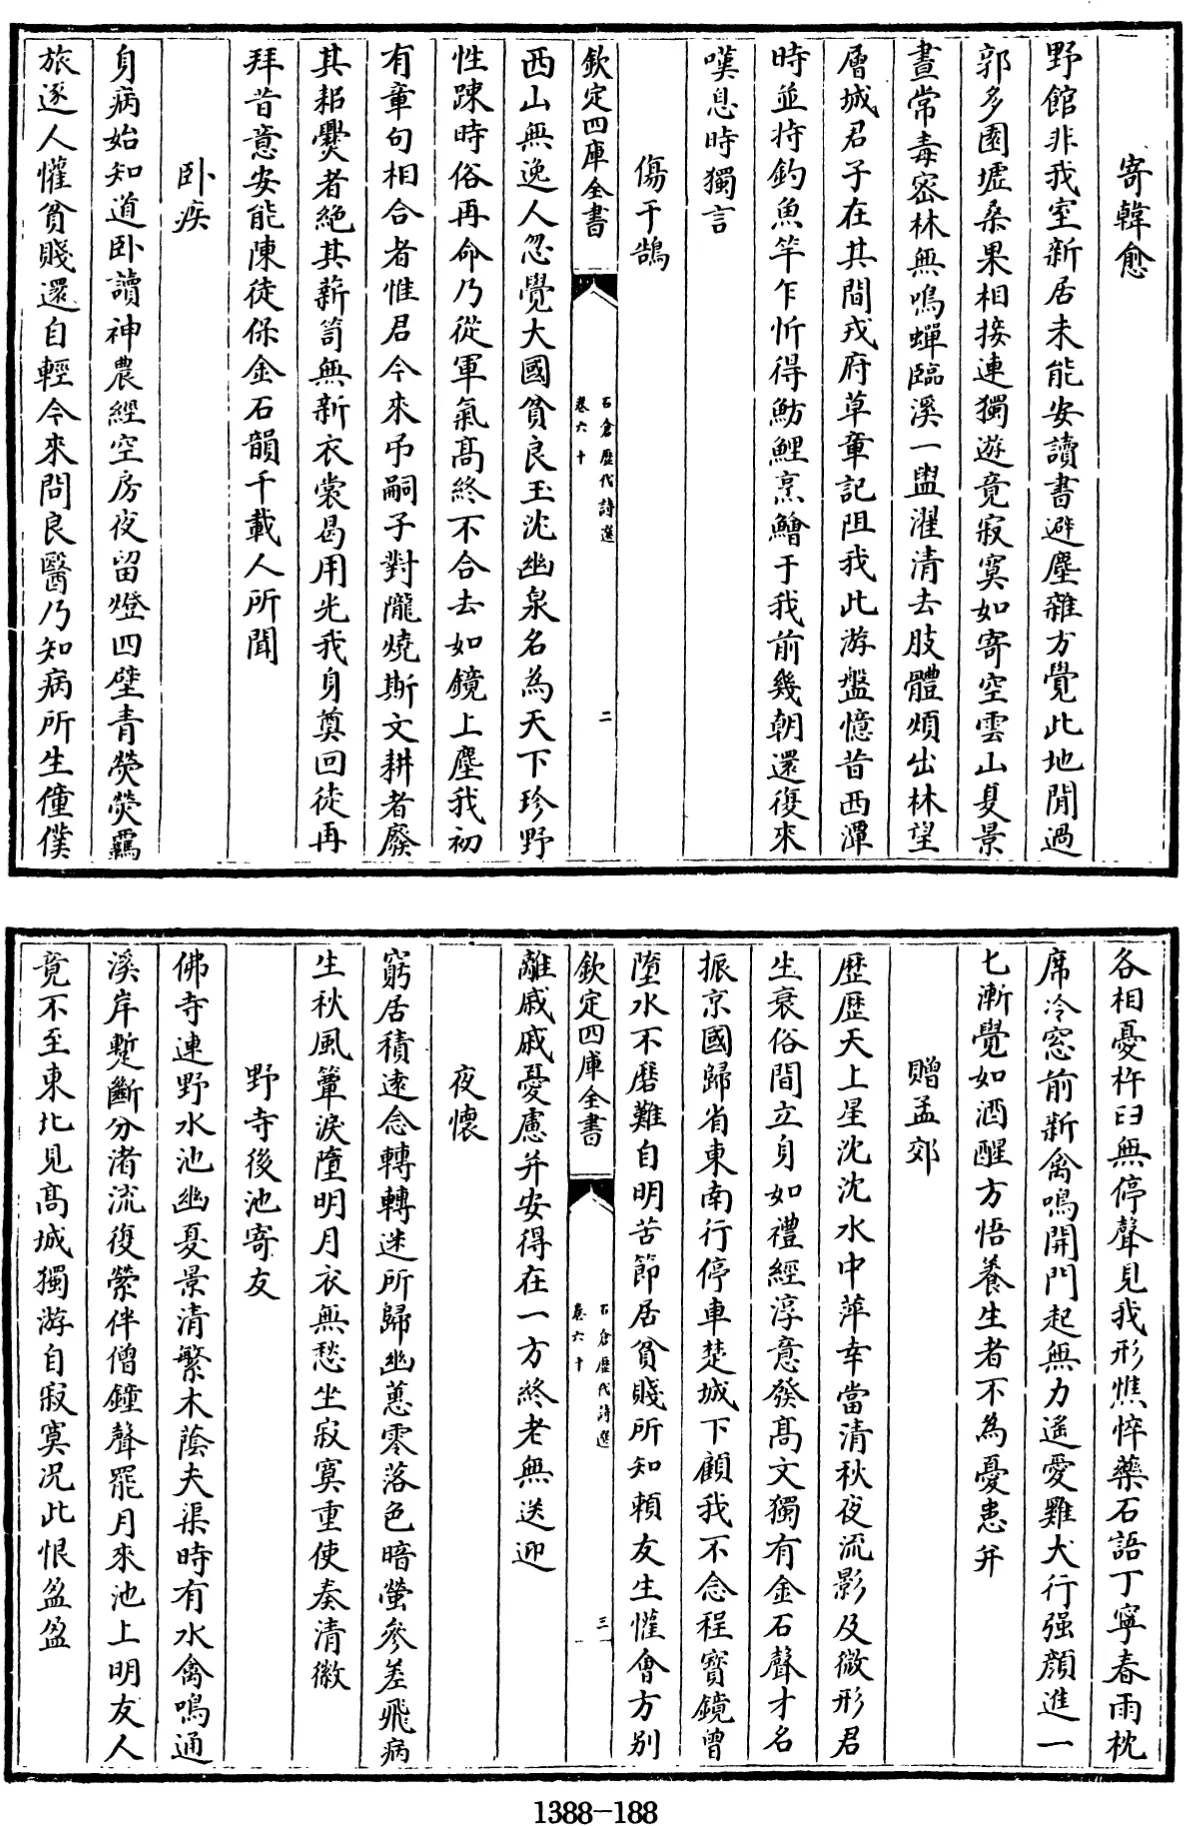 寄韓愈
野館非我室新居未能安讀書避塵雜方覺此地閒過
郭多園墟桑果相接連獨遊竟寂寞如寄空雲山夏景
晝常毒密林無鳴蟬臨溪一盥濯清去肢體煩出林望
曾城君子在其間戎府草章記阻我此游盤憶昔西潭
時並持釣魚竿乍忻得魴鯉烹鱠于我前幾朝還復來
嘆息時獨言
傷于鵠
欽定四庫全書
石倉歷代詩選
卷六十
二
西山無逸人忽覺大國貧良玉沈幽泉名為天下珍野
性踈時俗再命乃從軍氣高終不合去如鏡上塵我初
有章句相合者惟君今來弔嗣子對隴燒斯文耕者廢
其耜爨者絕其薪笥無新衣裳曷用光我身奠回徒再
拜昔意安能陳徒保金石韻千載人所聞
卧疾
身病始知道卧讀神農經空房夜留燈四壁青熒熒羈
旅逐人懽貧賤還自輕今來問良醫乃知病所生僮僕
各相憂杵臼無停聲見我形憔悴藥石語丁寧春雨枕
席冷窓前新禽鳴開門起無力遥愛雞犬行强顔進一
七漸覺如酒醒方悟養生者不為憂患并
贈孟郊
歷歷天上星沈沈水中萍幸當清秋夜流影及微形君
生衰俗間立身如禮經淳意發高文獨有金石聲才名
振京國歸省東南行停車楚城下顧我不念程寳鏡曾
墮水不磨難自明苦節居貧賤所知賴友生懽會方别
欽定四庫全書
石倉歷代詩選
卷六十
三
離戚戚憂慮并安得在一方終老無送迎
夜懷
窮居積逺念轉轉迷所歸幽蕙零落色暗螢參差飛病
生秋風簟淚墮明月衣無愁坐寂寞重使奏清徽
野寺後池寄友
佛寺連野水池幽夏景清繁木蔭夫渠時有水禽鳴通
溪岸蹔斷分渚流復縈伴僧鐘聲罷月來池上明友人
竟不至東北見高城獨游自寂寞况此恨盈盈
1388-188